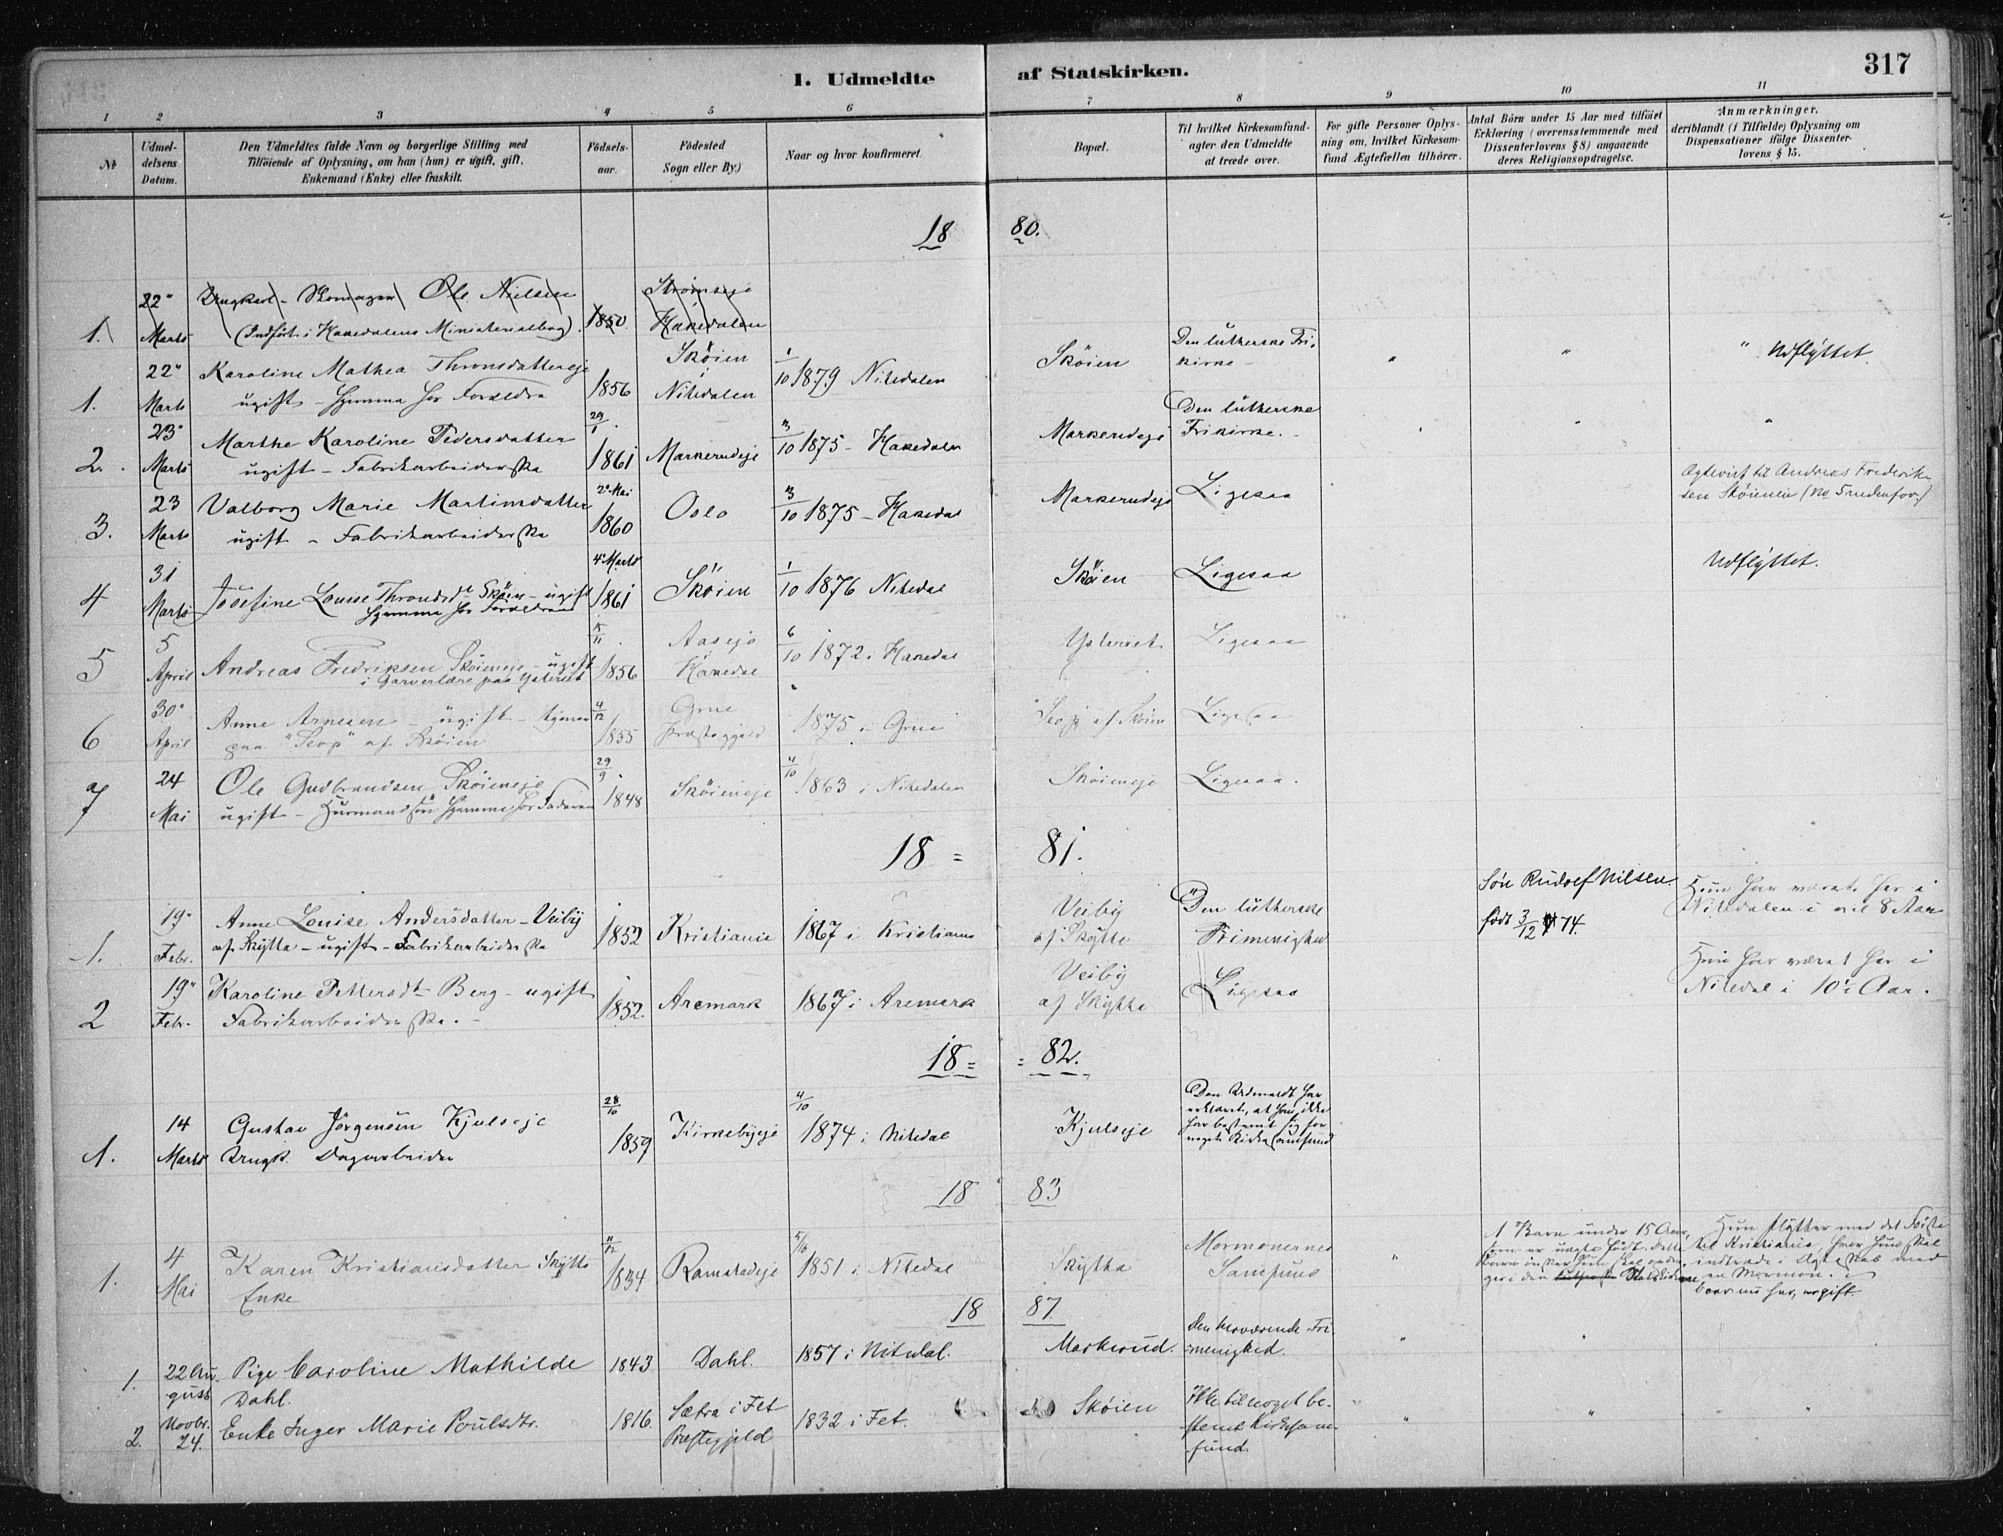 I. Udmeldte af Statskirken. 317
1 2 3 4 5 6 7 8 9 10 11
№
Udmel-
delsens
Datum.
Den Udmeldtes fulde Navn og borgerlige Stilling med
Tilføiende af Oplysning, om han (hun) er ugift, gift,
Enkemand (Enke) eller fraskilt.
Fødsels-
aar.
Fødested
Sogn eller By.)
Naar og hvor konfirmeret.
Bopæl.
Til hvilket Kirkesamfund-
agter den Udmeldte
at træde over.
For gifte Personer Oplys-
ning om, hvilket Kirkesam-
fund Ægtefællen tilhører.
Antal Børn under 15 Aar med tilføiet
Erklæring (overensstemmende med
Dissenterlovens § 8) angaaende
deres Religionsopdragelse.
Anmærkninger.
deriblandt (i Tilfælde) Oplysning om
Dispensationer ifølge Dissenter-
lovens § 15.
18 80.
1. 22" Marts
Ungkarl - Skomager Ole Nielsen
(Indført i Hakedalens Ministerialbog)
1850.
Hakedalen
1. 22" Marts
Karoline Mathea Thronsdatter
ugift - hjemme hos Forældre
1856
Skøien
Nitedalen
1/10 1879 Nitedalen
Skøien
Den lutherske Fri-
kirke -
" " " Udflyttet.
2. 23" Marts
Marthe Karoline Pedersdatter
ugift - Fabrikarbeiderske
29/1 1861
Markerudeje
3/10 1875 - Hakedalen
Markerudeje
Den lutherske
Frikirke. -
3. 23 Marts
Valborg Marie Martinsdatter
ugift - Fabrikarbeiderske
2' Mai 1860
Oslo
3/10 1875 - Hakedal
Markerudeje
Ligesaa
Ægteviet til Andreas Frederik-
sen Skøieneie
4 31 Marts
Josefine Louise Throndsdt Skøien - ugift
hjemme hos Forældrene
4' Marts 1861
Skøien
1/10 1876 Nitedal
Skøien
Ligesaa
Udflyttet.
5 5 April
Andreas Fredriksen Skøieneje - ugift
i Garverlære paa Ysteriet
1856
Aaseje
Hakedal
6/10 1872 i Hakedal
Ysteriet
Ligesaa
6 30' April
Anne Arnesen - ugift - tjener
paa "Seop" af Skøien
4/12 1855
Grue
Præstegjæld
1875 i Grue
af Skøien
Ligesaa
7 24 Mai
Ole Gudbrandsen Skøieneje
ugift - Husmandssøn hjemme hos Faderen
29/9 1848
Skøieneje
4/10 1863 i Nitedalen
Skøieneje
Ligesaa.
18 = 81.
1. 19" Febr.
Anne Louise Andersdatter - Veiby
af Skytta - ugift - Fabrikarbeiderske
1852
Kristiania
1867 i Kristiania
Veiby
af Skytta
Den lutherske
Frimenighed
Søn Rudolf Nilsen.
født 3/12 74.
Hun har været her i
Nitedalen i vel 8 Aar
2 19" Febr.
Karoline Pettersdt Berg - ugift
Fabrikarbeiderske. -
1852.
Aremark
1867 i Aremark
Veiby
af Skytta
Ligesaa
Hun har været her i
Nitedal i 10½ Aar.
18 = = 82.
1. 14 Marts
Gustav Jørgensen Kjulseje
Ungk. Dagarbeider
28/10 1859
Kirkebyeje
4/10 1874 i Nitedal
Kjulseje
Den Udmeldt har
erklæret, at han ikke
har bestemt sig for
noget Kirkesamfund
18 83
1. 4 Mai
Karen Kristiansdatter Skytta
Enke
11/12 1834
Ramstadeje
5/6 1851 i Nitedal
Skytta
Mormonernes
Samfund
1 Barn under 15 Aar,
som er uægte født. Dette
Barn ønsker hun skal opdra-
ges i den Statskirken
Hun flytter med det første
til Kristiania, hvor hun skal
indtræde i Ægteskab med
en Mormon. -
boer nu her, ugift.
18 87.
1. 22 Au-
gust
Pige Caroline Mathilde
Dahl.
1843
Dahl.
1857 i Nitedal.
Markerud.
Den herværende Fri-
menighed.
2. Novbr. 24.
Enke Inger Marie Poulsdtr.
1816.
Sætra i Fet
Præstegjeld
1832 i Fet.
Skøien
Ikke til noget be-
stemt Kirkesam-
fund.